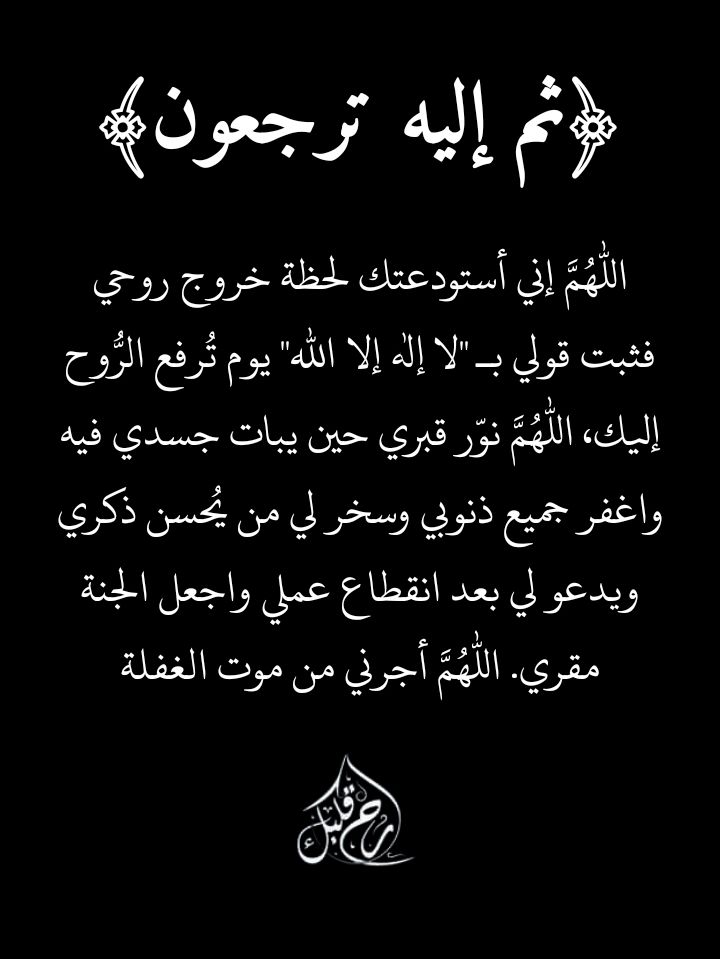 ﴿ثم إليه ترجعون﴾
اللّٰهُمَّ إني أستودعتك لحظة خروج روحي
فثبت قولي بـ "لا إلٰه إلا الله" يوم تُرفع الرُّوح
إليك، اللّٰهُمَّ نوّر قبري حين يبات جسدي فيه
واغفر جميع ذنوبي وسخر لي من يُحسن ذكري
ويدعو لي بعد انقطاع عملي واجعل الجنة
مقري. اللّٰهُمَّ أجرني من موت الغفلة